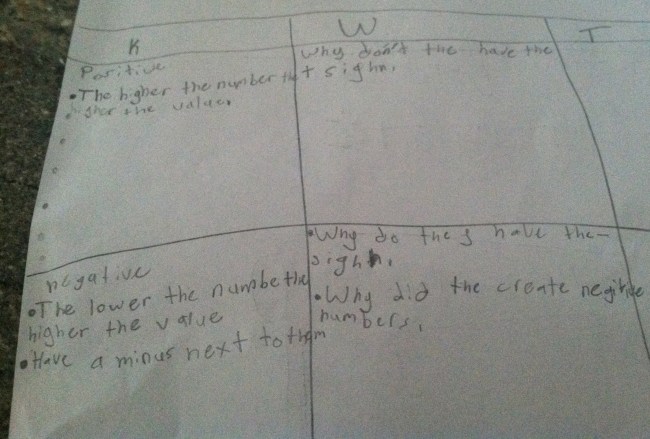 K
W
T
Positive
• The higher the number the
higher the value.
Why don't the have the
+ sighn.
negative
• The lower the numbe the
higher the value
• Have a minus next to them
• Why do they have the -
sighn.
• Why did the create negitive
numbers.